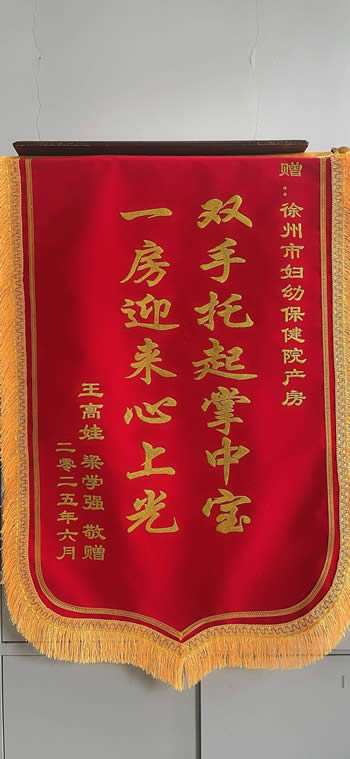 赠：徐州市妇幼保健院产房
双手托起掌中宝
一房迎来心上光
王高娃 梁学强 敬赠
二零二五年六月